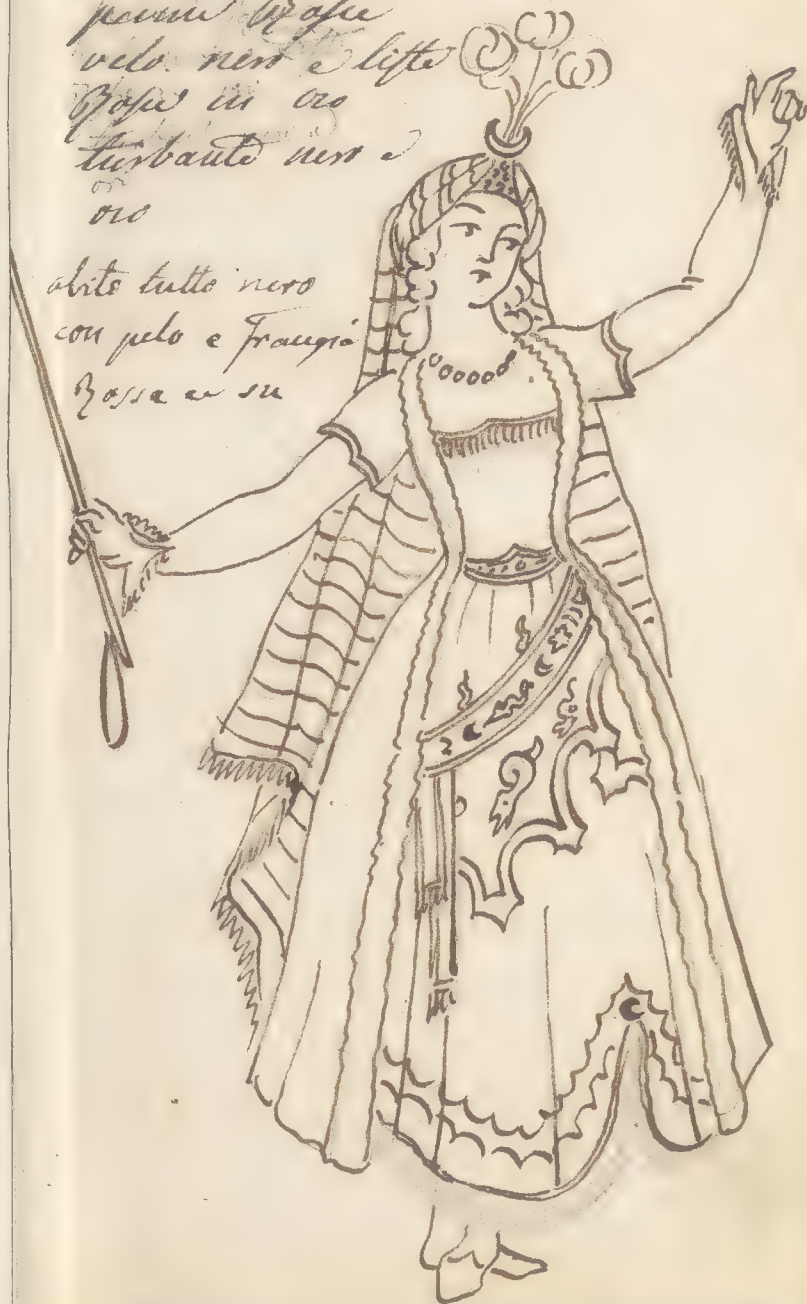 penne Rosse
velo nero e liste
Rosse in oro
turbante nero e
oro
abito tutto nero
con pelo e Frangia
Rossa in su